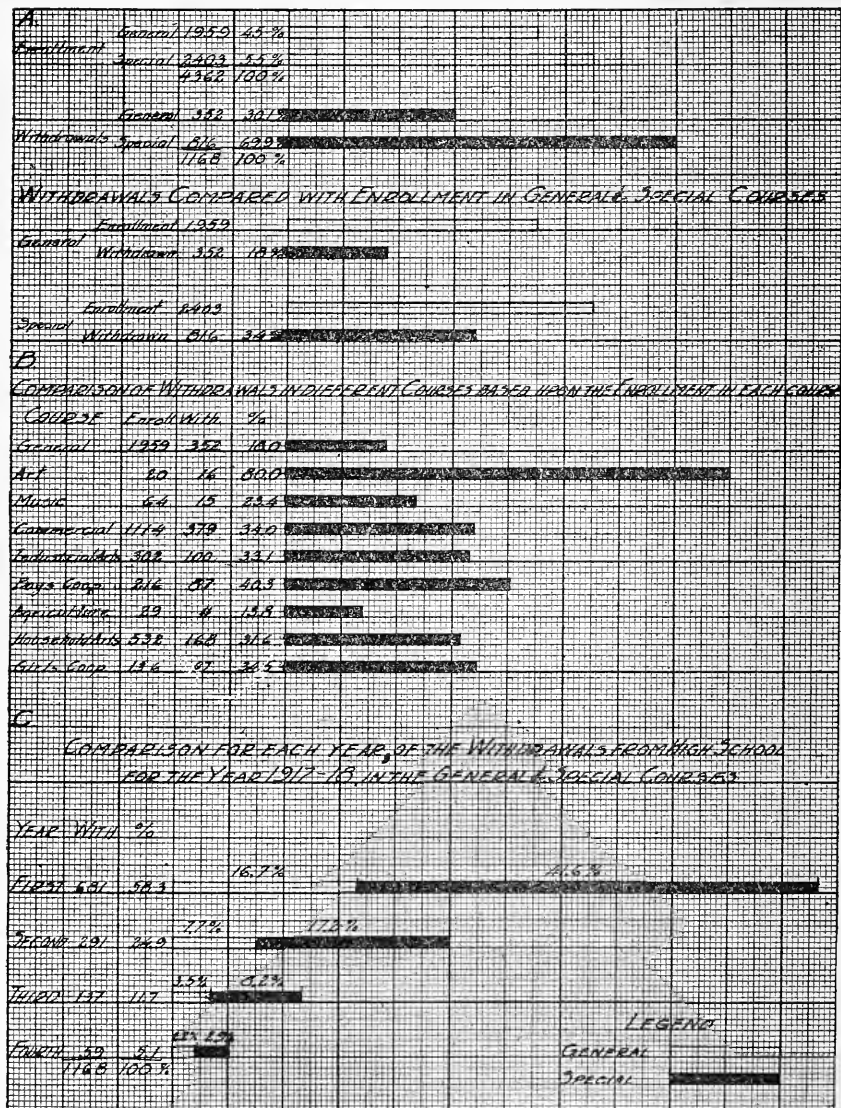 A.
General 1959 45%
Enrollment
Special 2403 55%
4362 100%
General 352 30.1%
Withdrawals Special 816 69.9%
1168 100%
WITHDRAWALS COMPARED WITH ENROLLMENT IN GENERAL & SPECIAL COURSES
Enrollment 1959
General
Withdrawn 352 18%
Enrollment 2403
Special
Withdrawn 816 34%
B
COMPARISON OF WITHDRAWALS IN DIFFERENT COURSES BASED UPON THE ENROLLMENT IN EACH COURSE
COURSE Enroll With. %
General 1959 352 18.0
Art 20 16 80.0
Music 64 15 23.4
Commercial 1114 379 34.0
Industrial Arts 302 100 33.1
Boys Coop 216 87 40.3
Agriculture 29 4 13.8
Household Arts 532 168 31.6
Girls Coop
C
COMPARISON FOR EACH YEAR, OF THE WITHDRAWALS FROM HIGH SCHOOL
FOR THE YEAR 1917-18, IN THE GENERAL & SPECIAL COURSES
YEAR WITH %
16.7% 41.6%
FIRST 681 58.3
7.7% 17.2%
SECOND 291 24.9
3.5% 8.2%
THIRD 137 11.7
2.9%
FOURTH 59 5.1
1168 100%
LEGEND
GENERAL
SPECIAL